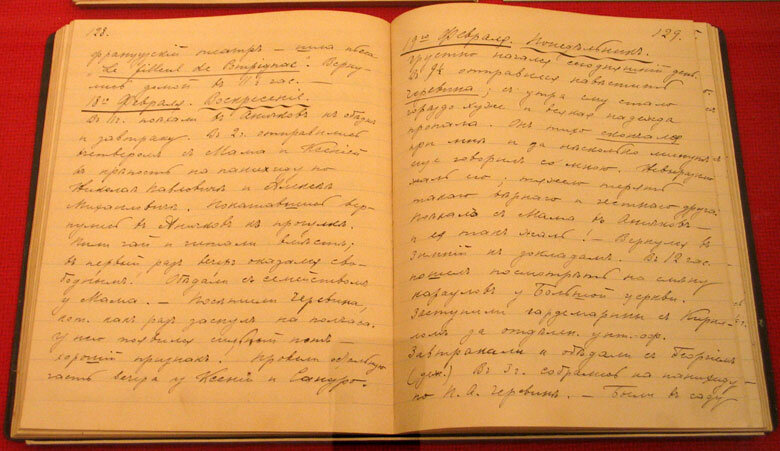 128.
французскій театръ — шла пьеса
"Le filleul de Pompignac". Верну-
лись домой въ 11 ½ час.
18го Февраля. Воскресенье.
Въ 11ч. поѣхали въ Аничковъ къ обѣднѣ
и завтраку. Въ 2ч. отправились
вчетверомъ съ Мама и Ксеніей
въ крѣпость на панихиду по
Николаѣ Павловичѣ и Алексѣѣ
Михаиловичѣ. Покатавшись вер-
нулись въ Аничковъ къ прогулкѣ.
Пили чай и читали вмѣстѣ;
въ первый разъ вечеръ оказался сво-
боднымъ. Обѣдали съ семействомъ
у Мама. — Посѣтили Черевина,
кот. какъ разъ заснулъ на полчаса.
У него появился потъ —
хорошій признакъ. Провели остальную
часть вечера у Ксеніи и Сандро.
129.
19го Февраля. Понедѣльникъ.
Грустно начался сегодняшній день.
Въ 9 ½ отправился навѣстить
Черевина; съ утра ему стало
гораздо хуже и всякая надежда
пропала. Онъ тихо скончался
при мнѣ и за нѣсколько минутъ
еще говорилъ со мною. Невыразимо
жаль его; тяжело терять
такого вѣрнаго и честнаго друга.
Поѣхалъ съ Мама въ Аничковъ —
и ея такъ жаль! — Вернулся въ
Зимній къ докладамъ. Въ 12 час.
пошелъ посмотрѣть на смѣну
карауловъ у Большой церкви.
Заступили гардемарины съ Кирил-
ломъ за отдѣлен. унт.-оф.
Завтракали и обѣдали съ Георгіемъ
(деж.) Въ 3ч. собрались на панихиду
по П. А. Черевинѣ. — Были въ саду